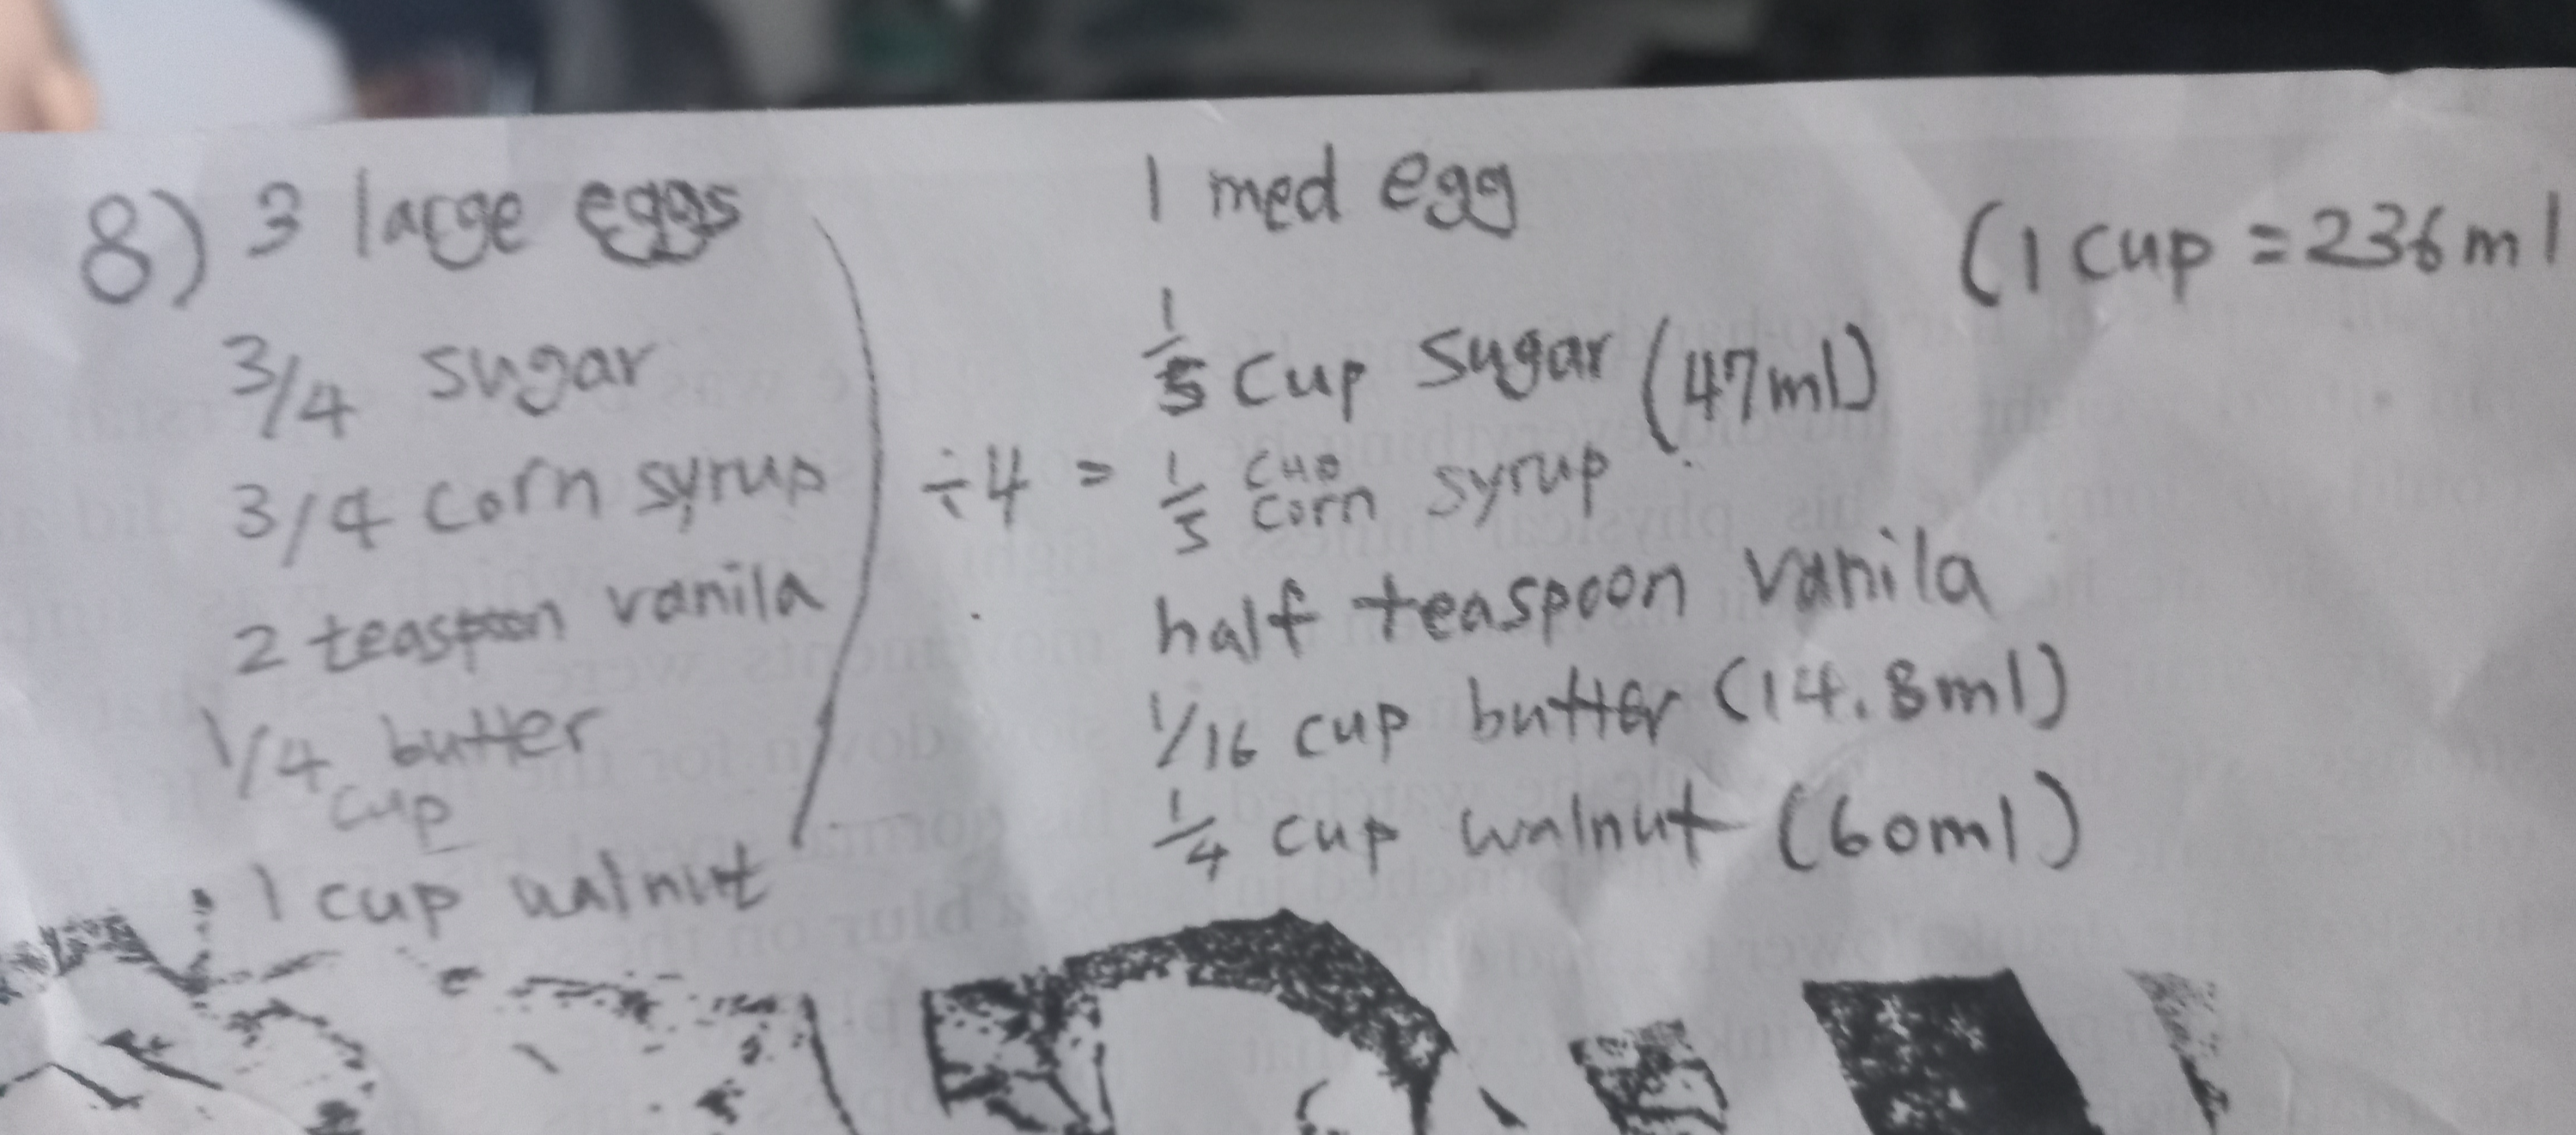 8) 3 large eggs
3/4 sugar
3/4 corn syrup
2 teaspoon vanila
1/4 butter
cup
1 cup walnut
÷4 =
1 med egg
1/5 cup sugar (47ml)
1/5 cup corn syrup
half teaspoon vanila
1/16 cup butter (14.8ml)
1/4 cup walnut (60ml)
(1 cup = 236ml